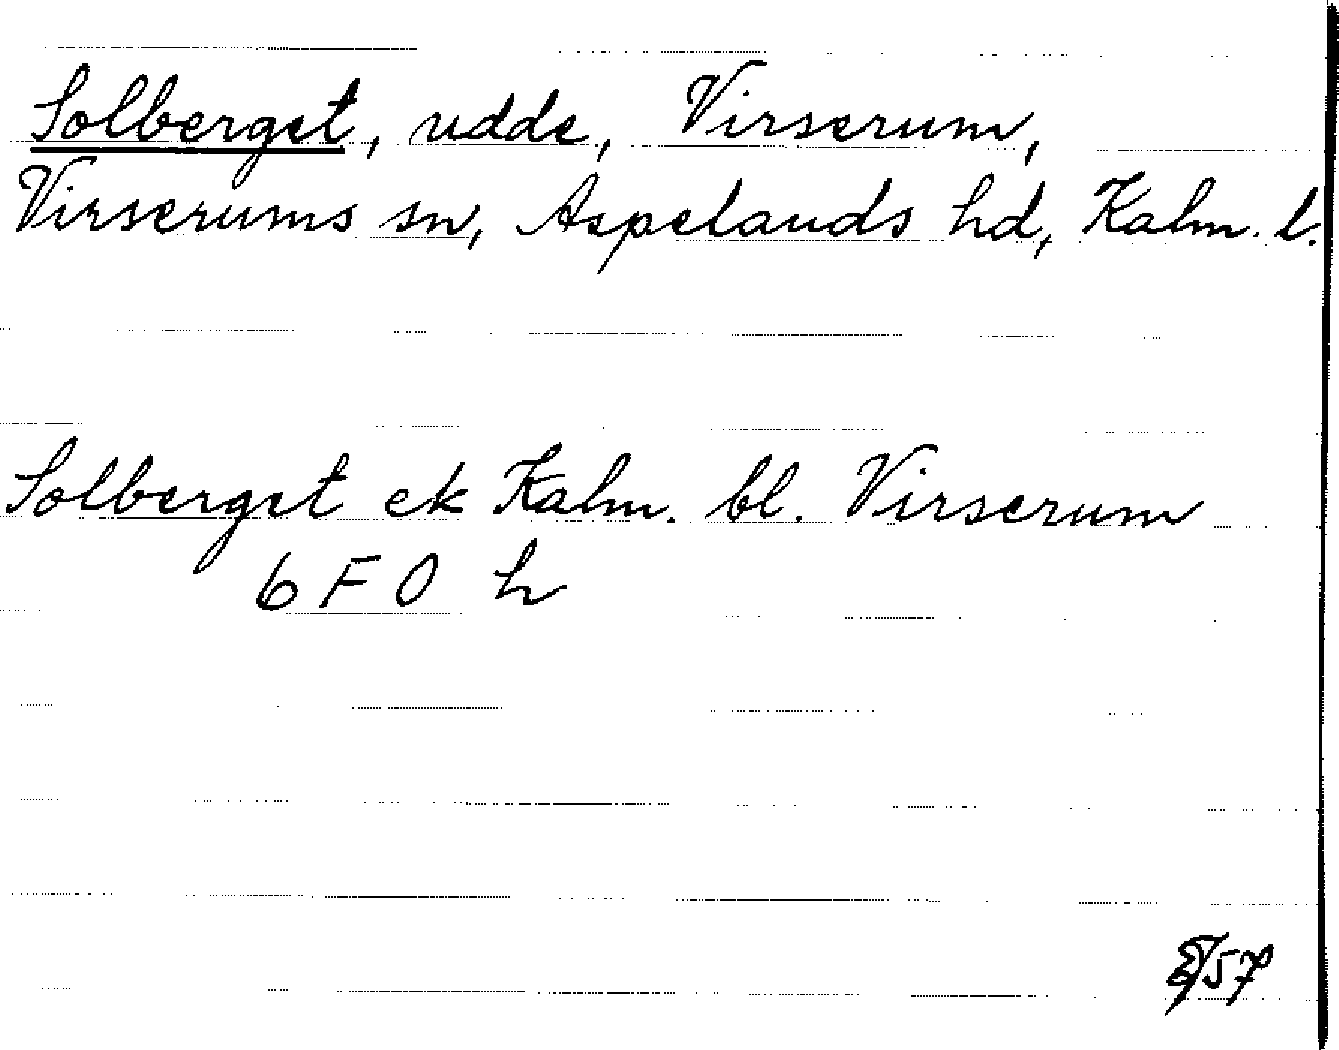 Solberget, udde, Virserum,
Virserums sn, Aspelands hd, Kalm. l.
Solberget ek Kalm. bl. Virserum
6 F 0 h
57